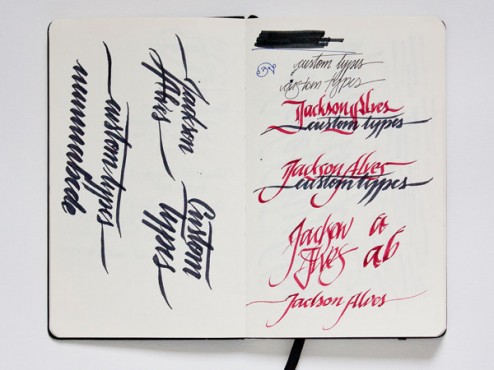 Jackson
Alves
Custom
types
custom types
custom types
custom types
Jackson Alves
custom types
Jackson Alves
custom types
Jackson a
Alves ab
Jackson Alves